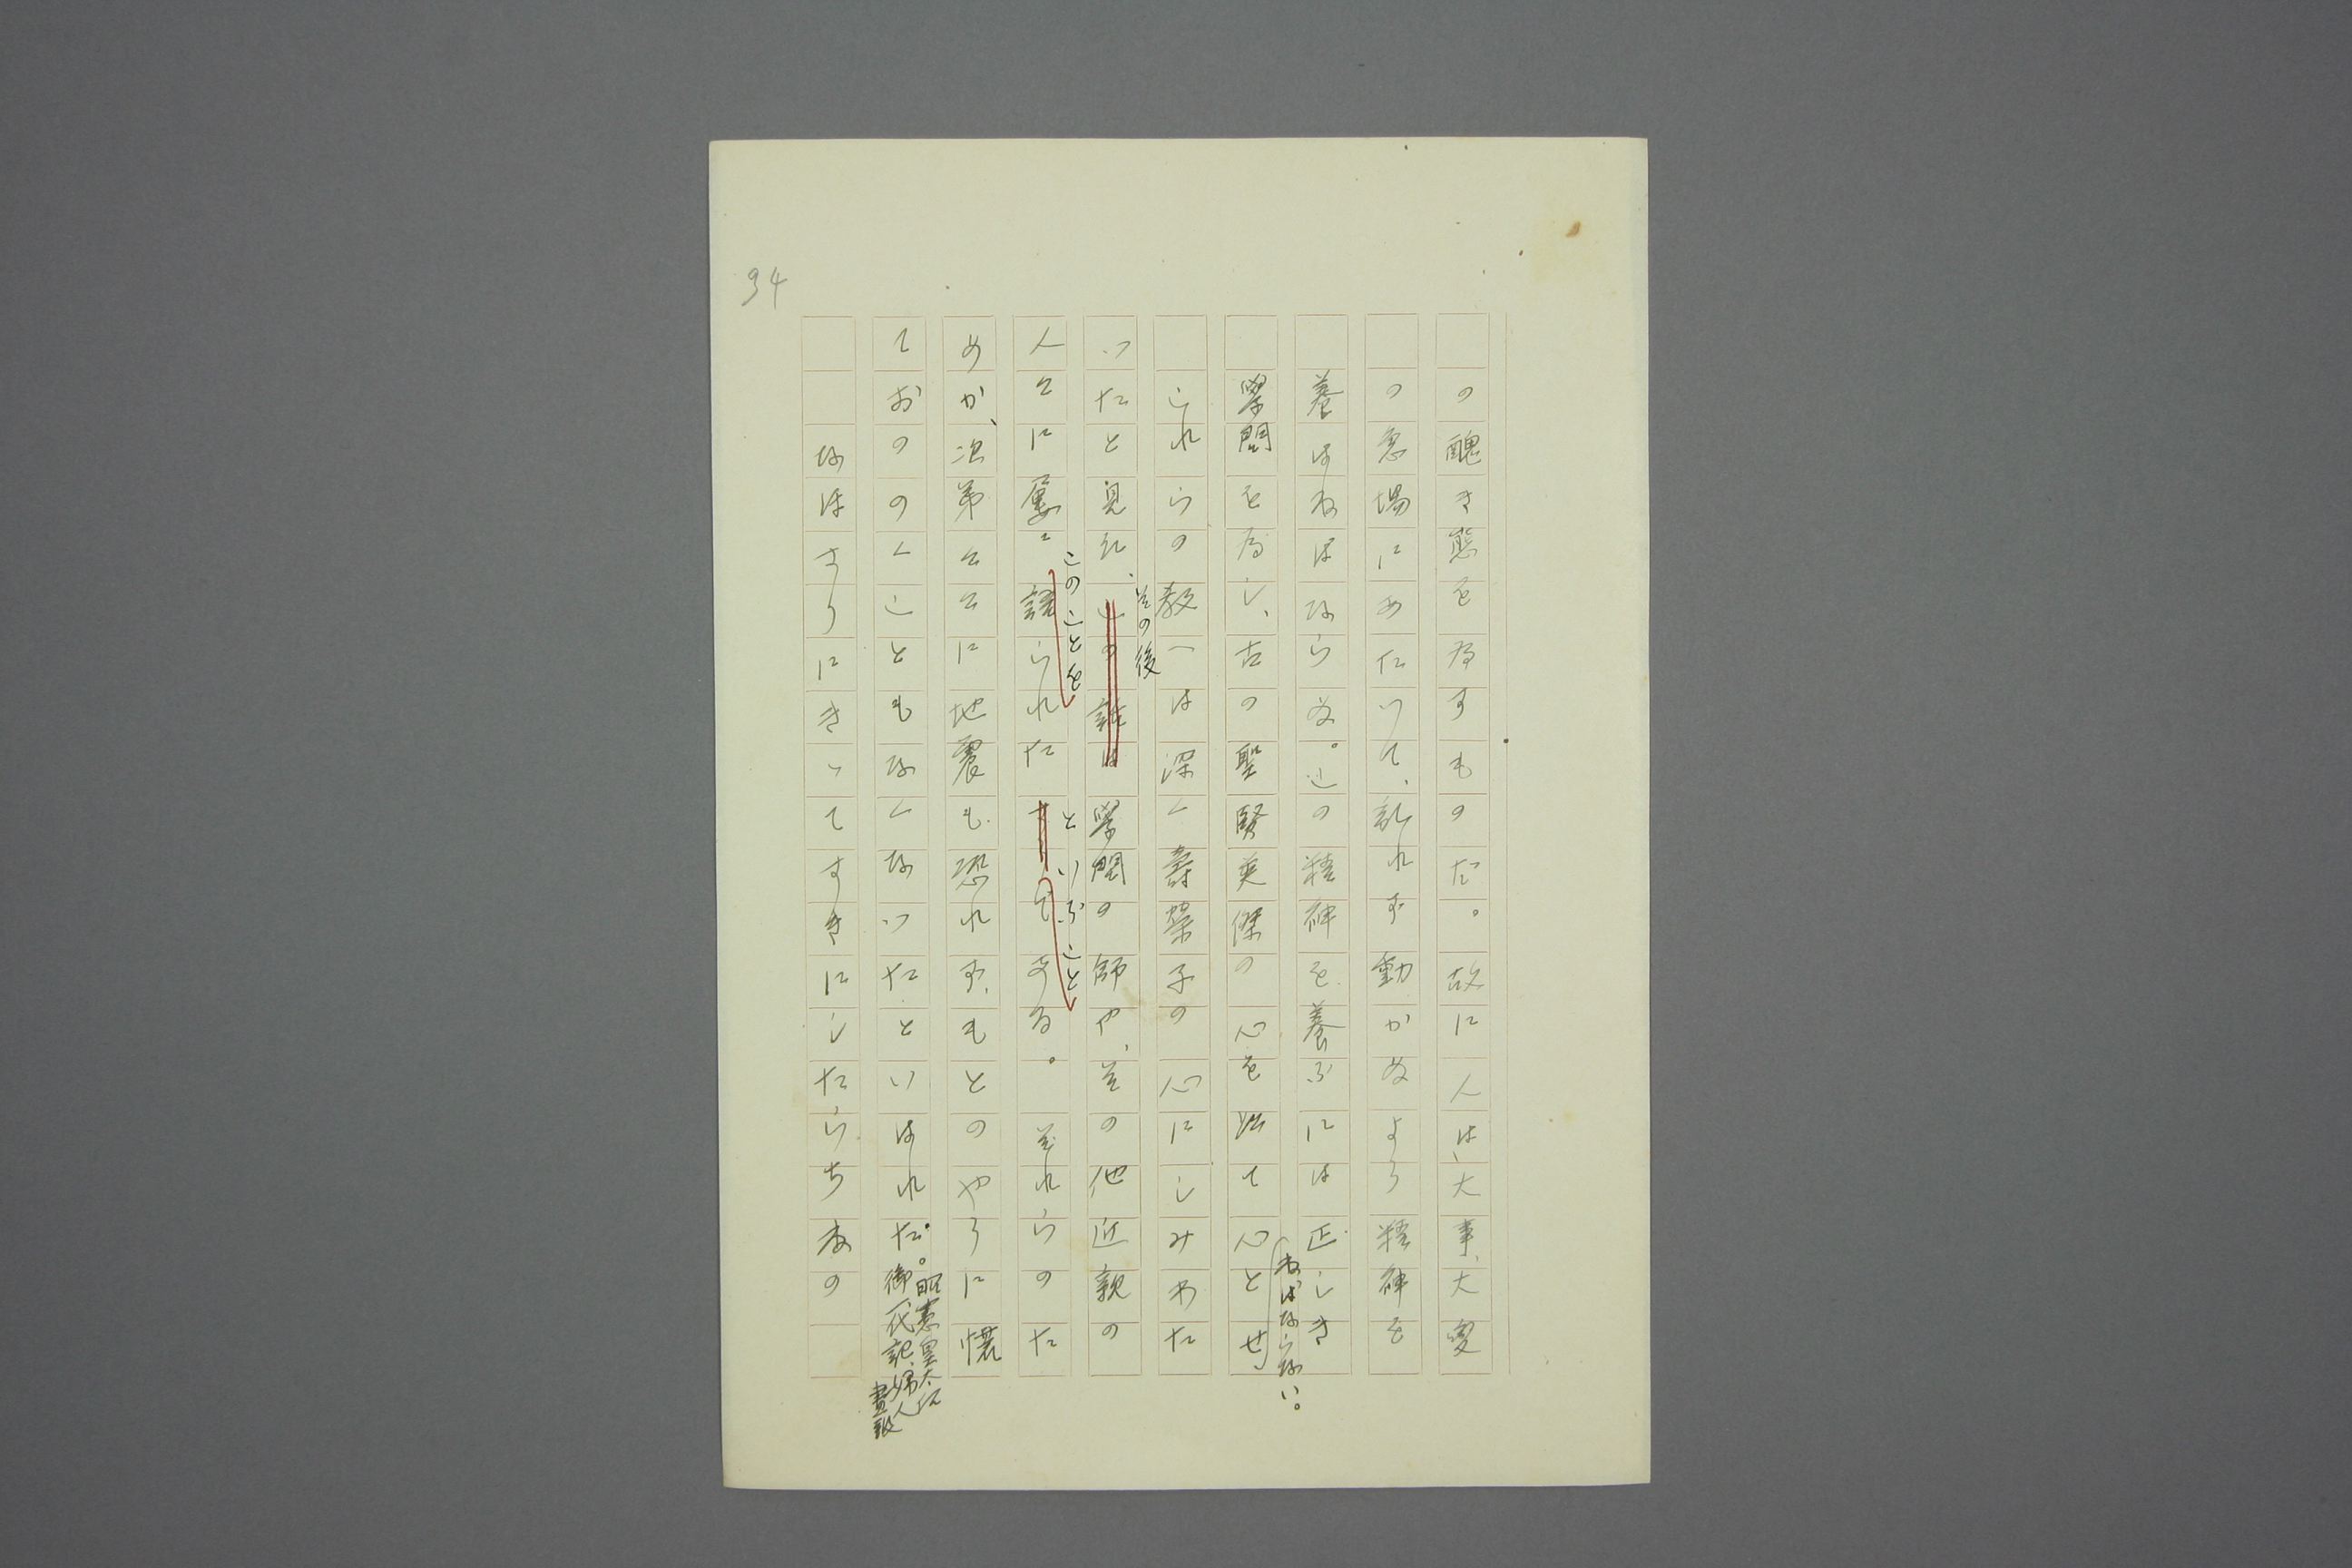 34
の醜き態を為すものだ。故に人は、大事、大変
の急場にあたつて、乱れず動かぬよう精神を
養はねばならぬ。この精神を養ふには正しき
學問を為し、古の聖賢英傑の心を以て心とせ
ねばならない。
これらの教へは深く壽榮子の心にしみわた
つたと見え、その話は學問の師や、その他近親の
その後
人々に屢々語られたさうである。それらのた
このことを
といふこと
めか、次第々々に地震も恐れず、もとのやうに
ておののくこともなくなつたといはれた。
昭憲皇太后
御一代記、婦人
畫報
なほさりにきゝてすきにしたらちねの